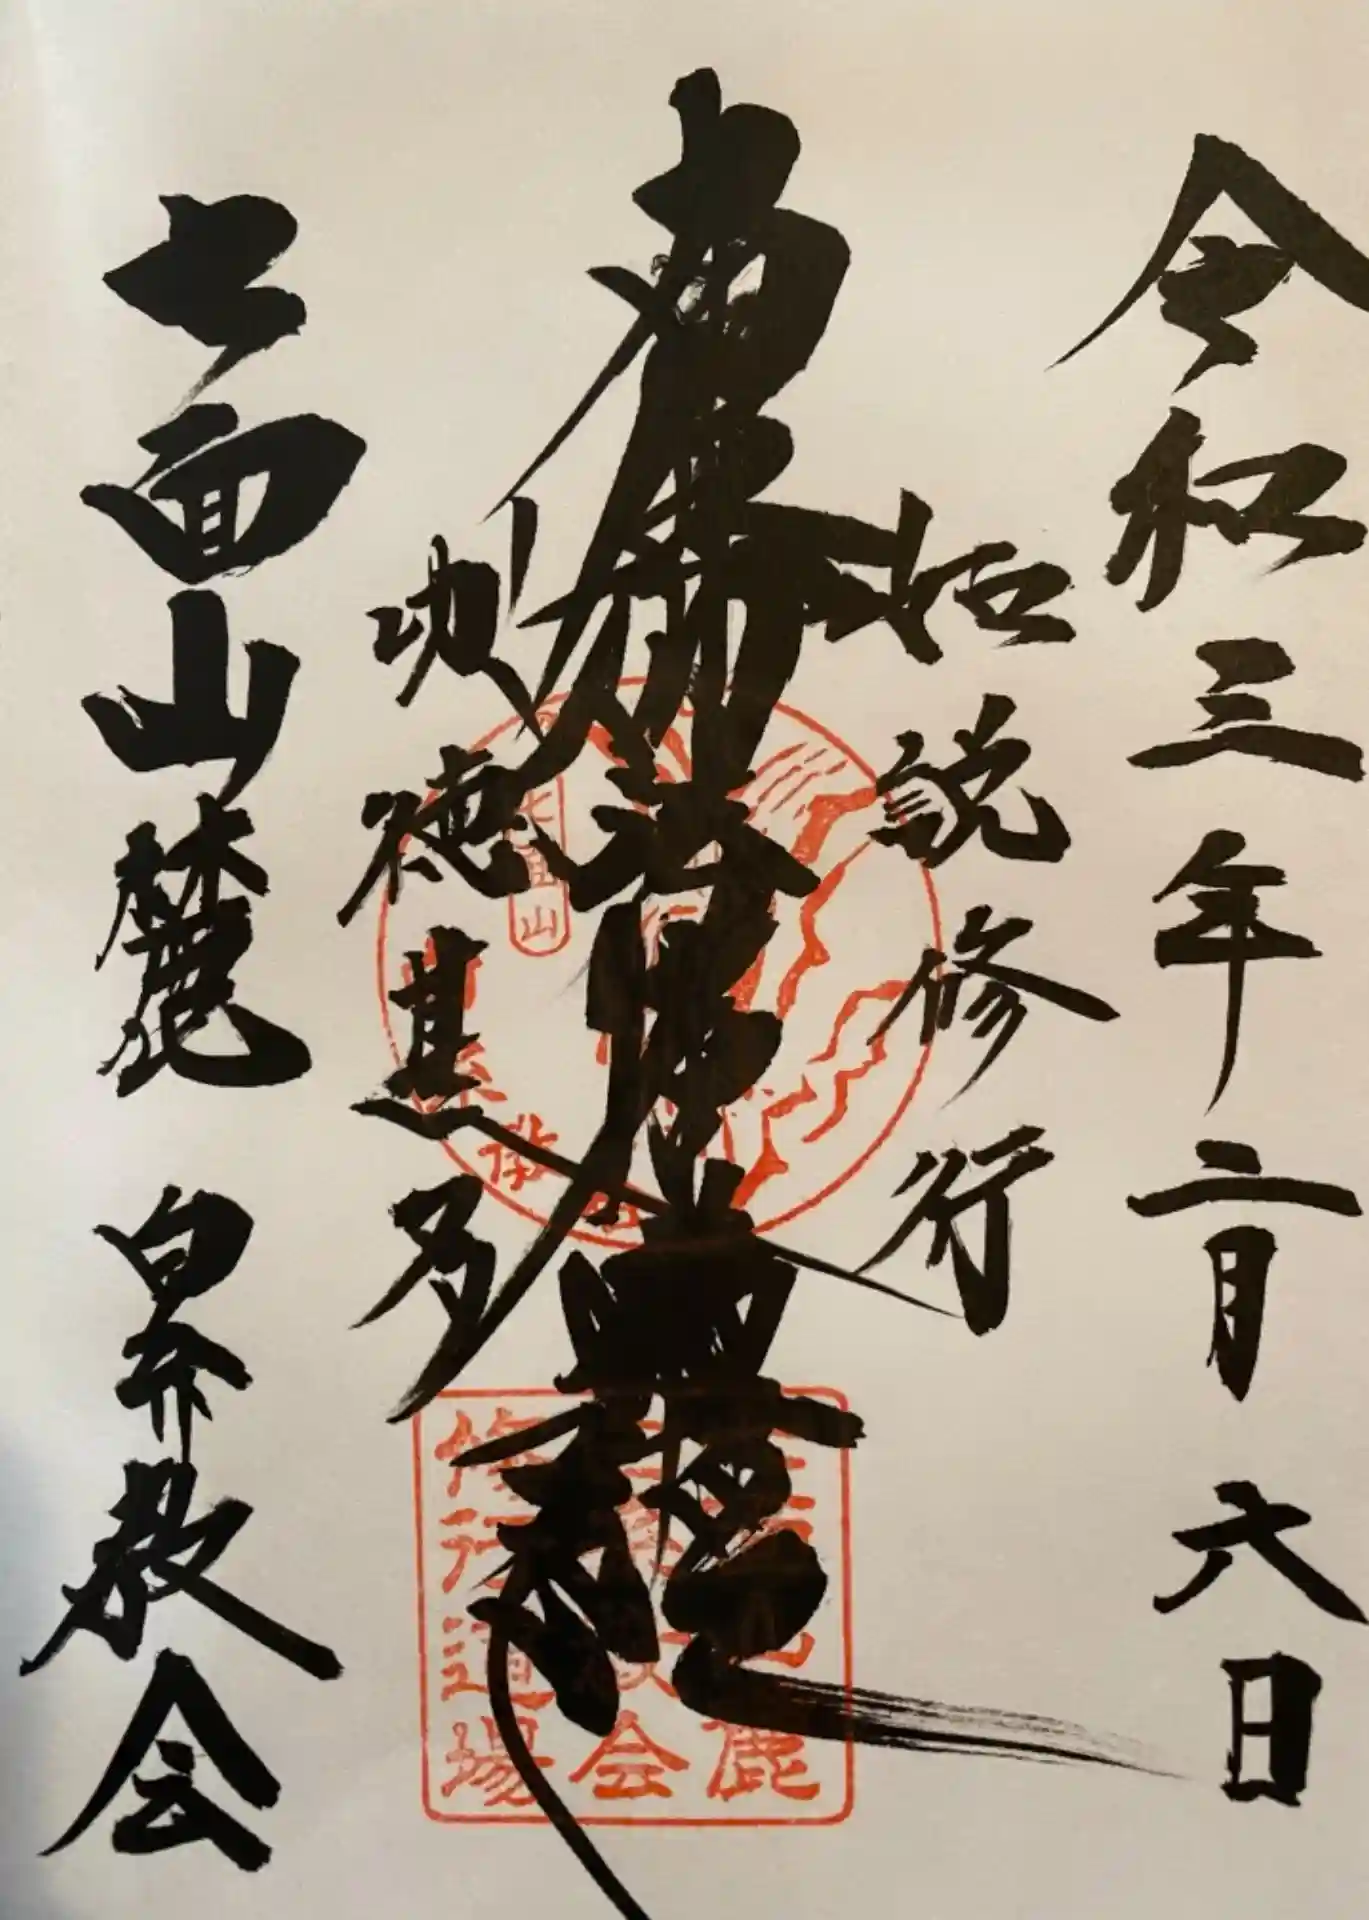 令和三年二月六日
如説修行
南無妙法蓮華経
功徳甚多
七面山麓 教会
七面山
七面山麓
教会
修行道場